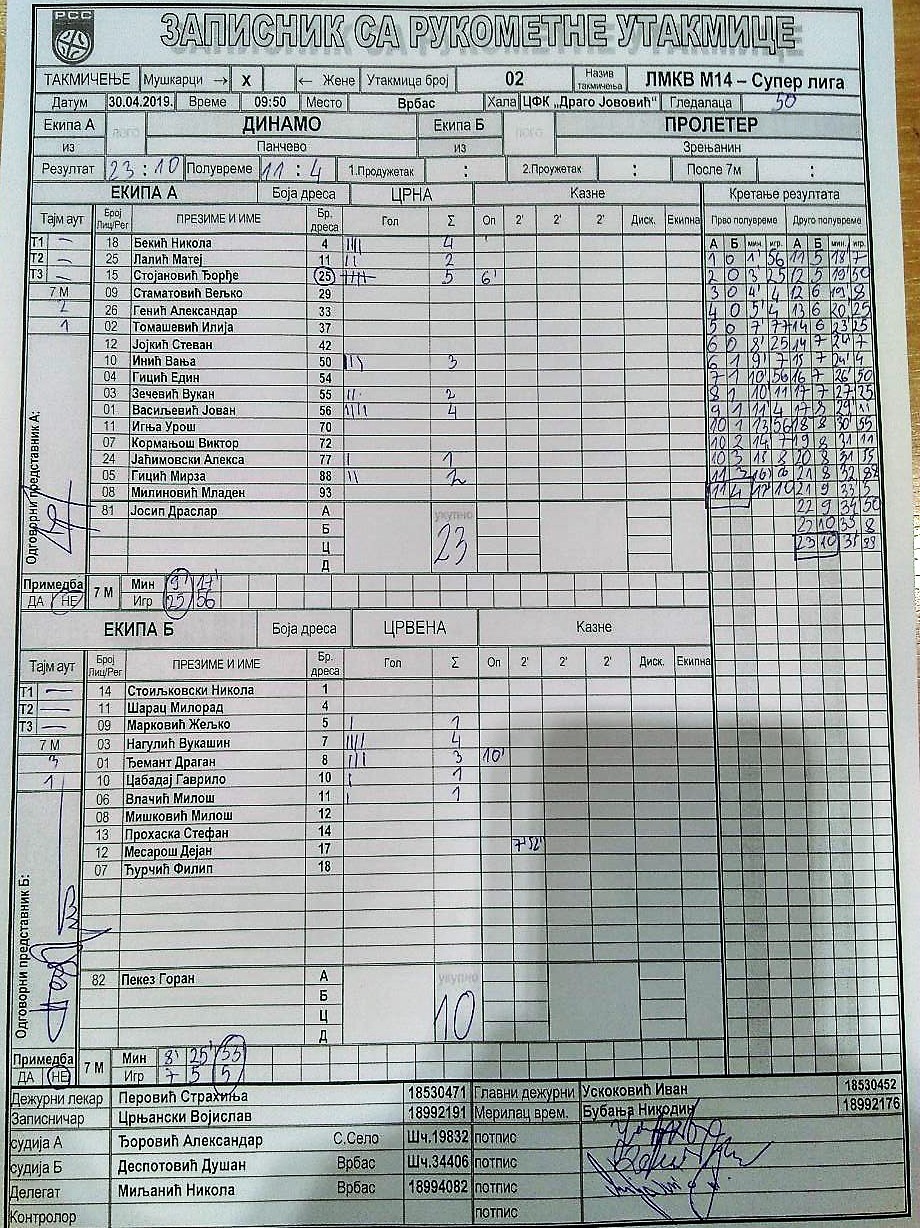 РСС
ЗАПИСНИК СА РУКОМЕТНЕ УТАКМИЦЕ
ТАКМИЧЕЊЕ Мушкарци → X ← Жене Утакмица број 02 Назив такмичења ЛМКВ М14 – Супер лига
Датум 30.04.2019. Време 09:50 Место Врбас Хала ЦФК „Драго Јововић“ Гледалаца 50
Екипа А ЛОГО ДИНАМО Екипа Б ЛОГО ПРОЛЕТЕР
из Панчево из Зрењанин
Резултат 23 : 10 Полувреме 11 : 4 1.Продужетак : 2.Проужетак : После 7м :
ЕКИПА А Боја дреса ЦРНА Казне Кретање резултата
Тај­м аут Број Лиц/Рег ПРЕЗИМЕ И ИМЕ Бр. дреса Гол Σ Оп 2' 2' 2' Диск. Екипна Прво полувреме Друго полувреме
А Б мин. игр. А Б мин. игр.
Т1 – 18 Бекић Никола 4 |||| 4 1 0 1' 56 11 5 18 7
Т2 – 25 Лалић Матеј 11 || 2 2 0 3' 25 12 5 19' 50
Т3 – 15 Стојановић Ђорђе 25 5 6' 3 0 4' 4 12 6 19' 8
7 М 09 Стаматовић Вељко 29 4 0 5' 4 13 6 20 25
2 26 Генић Александар 33 5 0 7' 77 14 6 23 25
1 02 Томашевић Илија 37 6 0 8' 25 14 7 24 7
12 Јојкић Стеван 42 6 1 9' 7 15 7 24 4
10 Инић Вања 50 ||| 3 7 1 10 56 16 7 26' 50
04 Гицић Един 54 8 1 10 11 17 7 27 25
03 Зечевић Вукан 55 || 2 9 1 11 4 17 8 29 11
01 Васиљевић Јован 56 |||| 4 10 1 13 56 18 8 30 55
11 Игња Урош 70 10 2 14 7 19 8 31 11
07 Кормањош Виктор 72 10 3 15 8 20 8 31 55
24 Јаћимовски Алекса 77 | 1 11 3 16 21 8 32 88
05 Гицић Мирза 88 || 2 11 4 17 10 21 9 33 5
08 Милиновић Младен 93 22 9 34 50
81 Јосип Драслар А укупно 23 22 10 35 8
Б 23 10 35 88
Ц
Д
Одговорни представник А:
Примедба ДА НЕ 7 М Мин 9' 17'
Игр 25 56
ЕКИПА Б Боја дреса ЦРВЕНА Казне
Тајм аут Број Лиц/Рег ПРЕЗИМЕ И ИМЕ Бр. дреса Гол Σ Оп 2' 2' 2' Диск. Екипна
Т1 – 14 Стоиљковски Никола 1
Т2 – 11 Шарац Милорад 4
Т3 – 09 Марковић Жељко 5 | 1
7 М 03 Нагулић Вукашин 7 |||| 4
3 01 Ђемант Драган 8 ||| 3 10'
1 10 Цабадај Гаврило 10 | 1
06 Влачић Милош 11 | 1
08 Мишковић Милош 12
13 Прохаска Стефан 14
12 Месарош Дејан 17 7'52'
07 Ђурчић Филип 18
82 Пекез Горан А укупно 10
Б
Ц
Д
Одговорни представник Б:
Примедба ДА НЕ 7 М Мин 8' 25' 33
Игр 7 5 5
Дежурни лекар Перовић Страхиња 18530471 Главни дежурни Ускоковић Иван 18530452
Записничар Црњански Војислав 18992191 Мерилац врем. Бубања Никодин 18992176
судија А Ђоровић Александар С.Село Шч.19832 потпис
судија Б Деспотовић Душан Врбас Шч.34406 потпис
Делегат Миљанић Никола Врбас 18994082 потпис
Контролор потпис